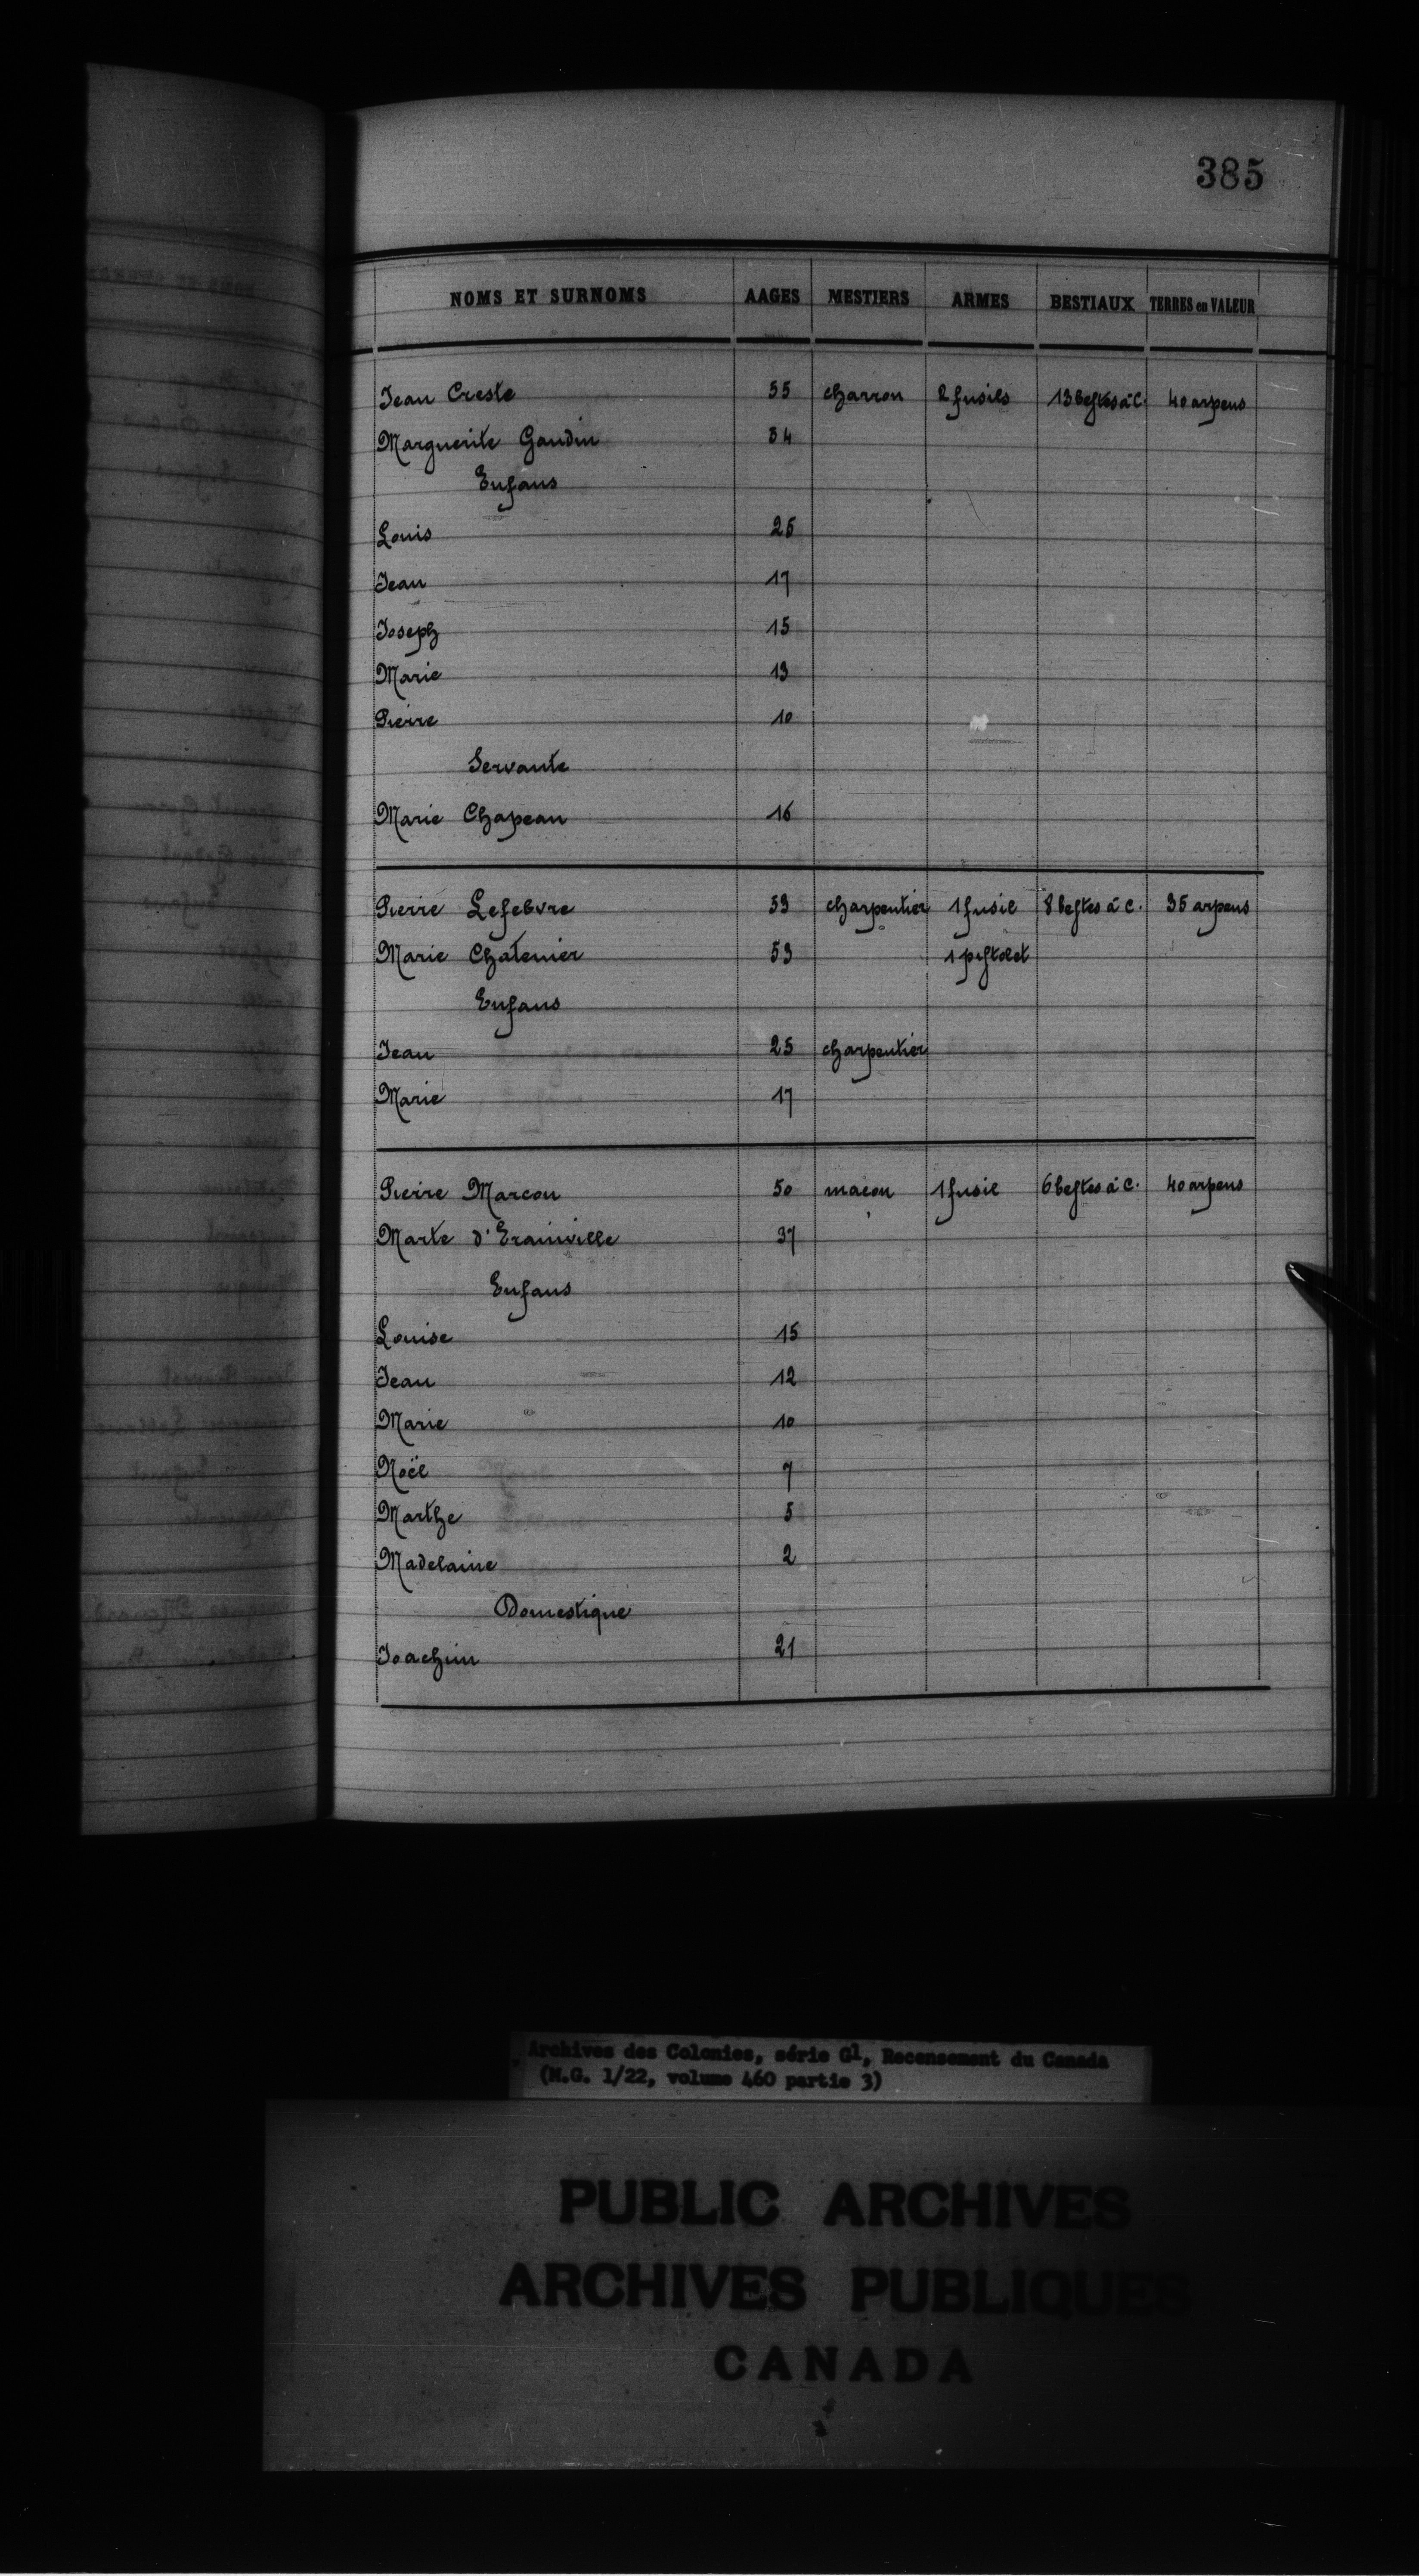 385
NOMS ET SURNOMS AAGES MESTIERS ARMES BESTIAUX TERRES en VALEUR
Jean Creste 55 charron 2 fusils 13 bestes à c. 40 arpens
Marguerite Gaudin 54
Enfans
Louis 25
Jean 17
Joseph 15
Marie 13
Pierre 10
Servante
Marie Chapeau 16
Pierre Lefebvre 53 charpentier 1 fusil 8 bestes à c. 35 arpens
Marie Chatenier 53 1 pistolet
Enfans
Jean 25 charpentier
Marie 17
Pierre Marcou 50 macon 1 fusil 6 bestes à c. 40 arpens
Marte d'Erainville 37
Enfans
Louise 15
Jean 12
Marie 10
Noël 7
Marthe 5
Madelaine 2
Domestique
Joachim 21
Archives des Colonies, série G1, Recensement du Canada
(M.G. 1/22, volume 460 partie 3)
PUBLIC ARCHIVES
ARCHIVES PUBLIQUES
CANADA